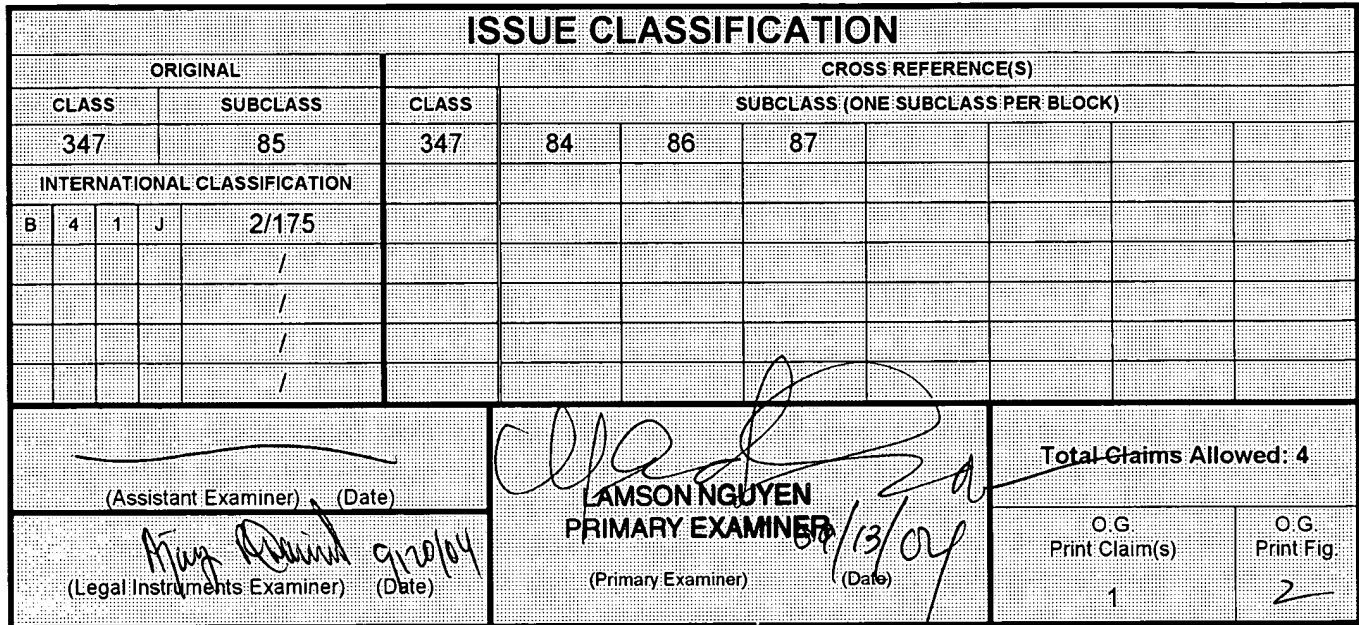 ISSUE CLASSIFICATION
ORIGINAL CROSS REFERENCE(S)
CLASS SUBCLASS CLASS SUBCLASS (ONE SUBCLASS PER BLOCK)
347 85 347 84 86 87
INTERNATIONAL CLASSIFICATION
B 4 1 J 2/175
/
/
/
/
(Assistant Examiner) (Date)
9/20/04
(Legal Instruments Examiner) (Date)
LAMSON NGUYEN
PRIMARY EXAMINER
09/13/04
(Primary Examiner) (Date)
Total Claims Allowed: 4
O.G. Print Claim(s)
1
O.G. Print Fig.
2